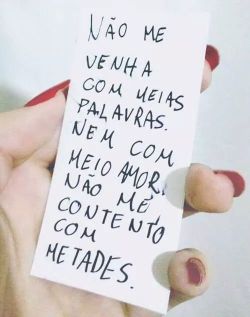 NÃO ME
VENHA
COM MEIAS
PALAVRAS.
NEM COM
MEIO AMOR.
NÃO ME
CONTENTO
COM
METADES.